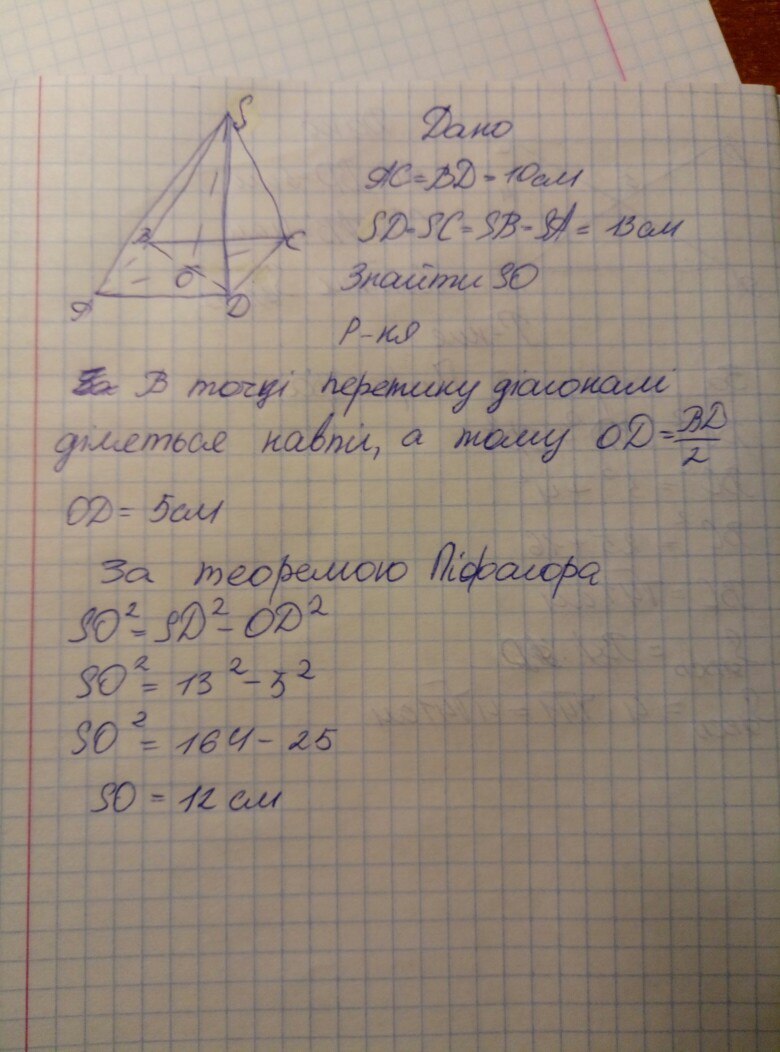 S
B
C
O
A
D
Дано
AC=BD=10см
SD=SC=SB=SA=13см
Знайти SO
Р-ня
В точці перетину діагоналі
діляться навпіл, а тому OD=BD/2
OD=5см
За теоремою Піфагора
SO²=SD²-OD²
SO²=13²-5²
SO²=164-25
SO=12см